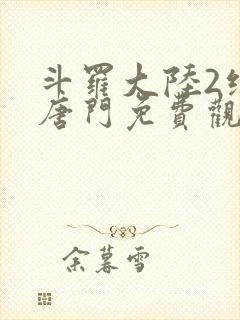 斗羅大陸2
唐門免費觀
余暮雪